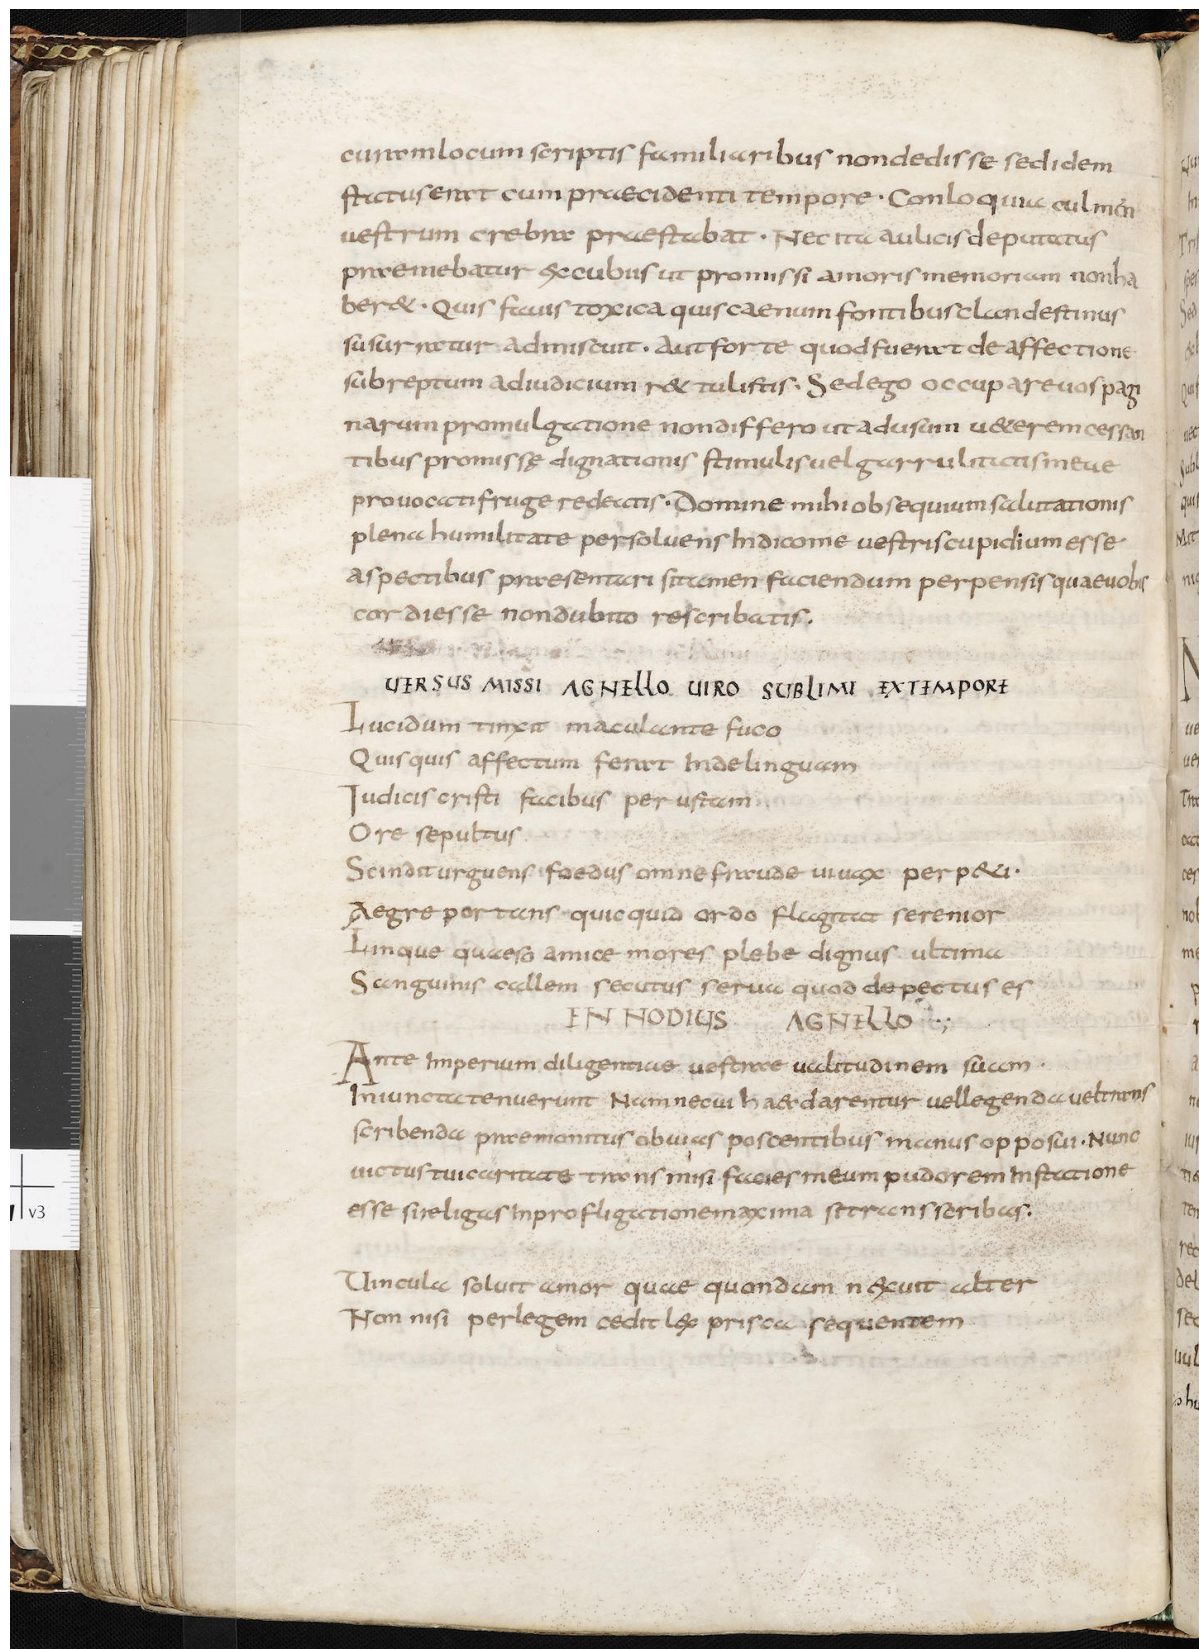 curam locum scriptis familiaribus non dedisse sed idem
status erat cum praecidenti tempore · Conloquia culmen
uestrum crebra praestabat · Nec ita aulicis deputatus
praemebatur excubiis ut promissi amoris memoriam non ha
ber& · Quis fauis toxica quis caenum fontibus clandestinus
susurratur admiscuit · Aut forte quod fuerat de affectione
subreptum ad iudicium r&tulistis · Sed ego occupare uos pagi
narum promulgatione non differo ut ad usum u&erem cessan
tibus promissę dignationis stimulis uel garrulitatis meae
prouocati fruge redeatis · Domine mi hi obsequium salutationis
plena humilitate persoluens Indico me uestris cupidium esse
aspectibus praesentari si tamen faciendum perpensis quae uobis
cordi esse non dubito rescribatis.
UERSUS MISSI AGNELLO UIRO SUBLIMI EXTEMPORE
Lucidum tinxit maculante fuco
Quisquis affectum ferat In de linguam
Iudicis cristi facibus perustam
Ore sepultus
Scindit urguens foedus omne fraude uiuax perp&i ·
Aegre portans quicquid ordo flagitat serenior
Linque quaeso amice mores plebe dignus ultima
Sanguinis callem secutus serua quod depectus es
ENNODIUS AGNELLO
Ante Imperium diligentiae uestrae ualitudinem suam ·
Iniuncta tenuerunt Nam ne cui haec darentur uel legenda uel trans
scribenda praemonitus obuias poscentibus manus opposui · Nunc
uictus tui caritate transmisi facies meum pudorem Instatione
esse si religas In profligatione maxima se transscribas.
Uincula soluit amor quae quondam nexuit alter
Non nisi per legem cedit lex prisca sequentem